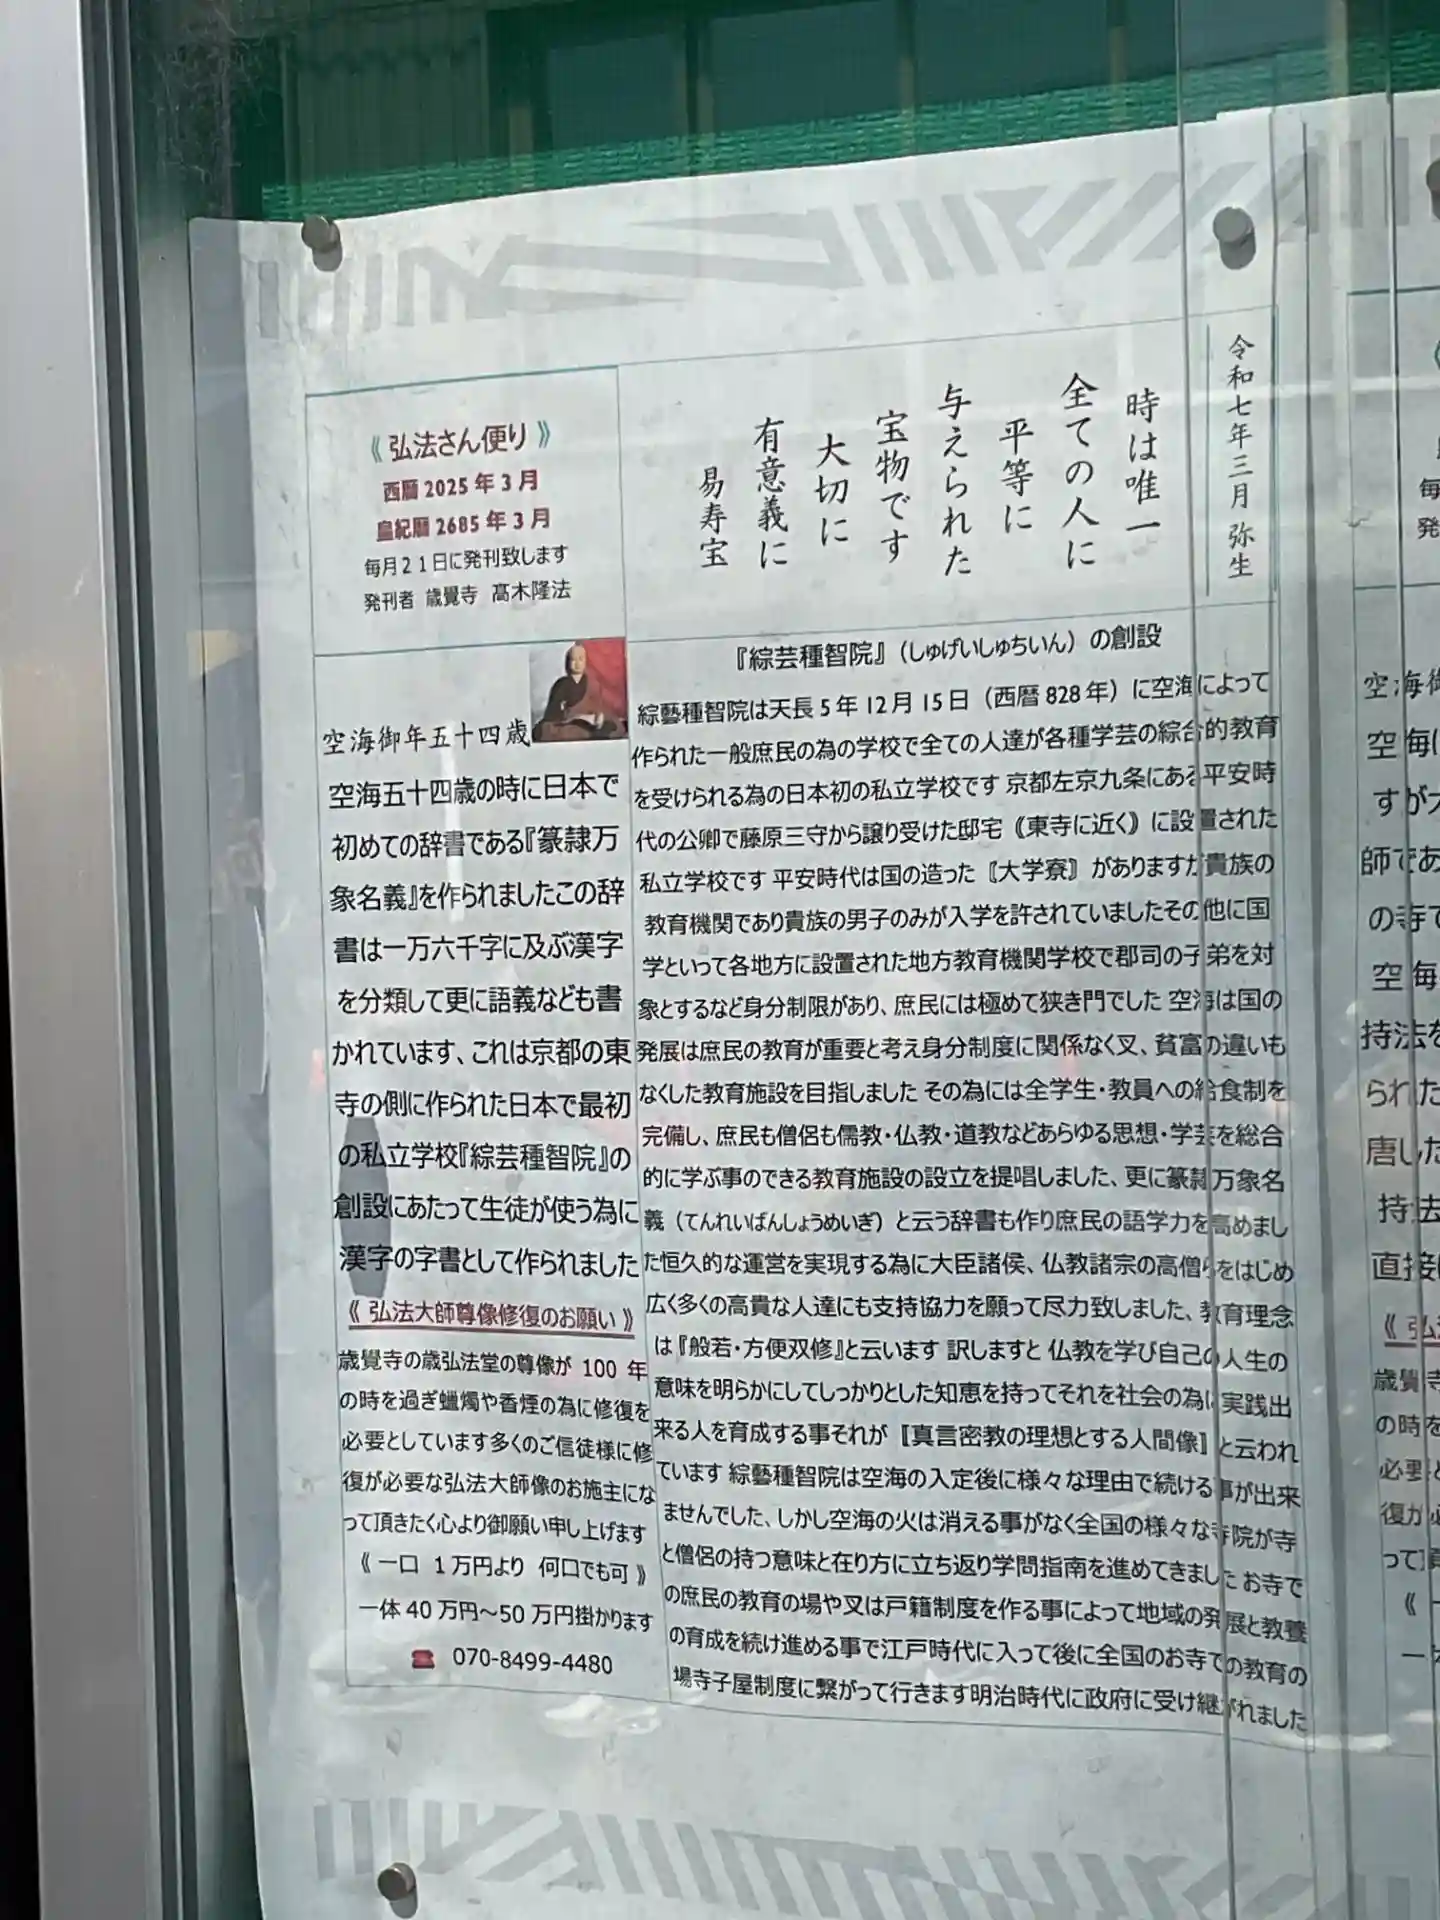 令和七年三月 弥生
時は唯一
全ての人に
平等に
与えられた
宝物です
大切に
有意義に
易寿宝
《 弘法さん便り 》
西暦 2025 年 3 月
皇紀暦 2685 年 3 月
毎月21日に発刊致します
発刊者 歳覺寺 髙木隆法
空海御年五十四歳
空海五十四歳の時に日本で
初めての辞書である『篆隷万
象名義』を作られましたこの辞
書は一万六千字に及ぶ漢字
を分類して更に語義なども書
かれています、これは京都の東
寺の側に作られた日本で最初
の私立学校『綜芸種智院』の
創設にあたって生徒が使う為に
漢字の字書として作られました
《 弘法大師尊像修復のお願い 》
歳覺寺の歳弘法堂の尊像が 100 年
の時を過ぎ蠟燭や香煙の為に修復を
必要としています多くのご信徒様に修
復が必要な弘法大師像のお施主にな
って頂きたく心より御願い申し上げます
《 一口 1万円より 何口でも可 》
一体 40 万円～50 万円掛かります
☎ 070-8499-4480
『綜芸種智院』（しゅげいしゅちいん）の創設
綜藝種智院は天長 5 年 12 月 15 日（西暦 828 年）に空海によって
作られた一般庶民の為の学校で全ての人達が各種学芸の綜合的教育
を受けられる為の日本初の私立学校です 京都左京九条にある平安時
代の公卿で藤原三守から譲り受けた邸宅《東寺に近く》に設置された
私立学校です 平安時代は国の造った〖大学寮〗がありますが貴族の
教育機関であり貴族の男子のみが入学を許されていましたその他に国
学といって各地方に設置された地方教育機関学校で郡司の子弟を対
象とするなど身分制限があり、庶民には極めて狭き門でした 空海は国の
発展は庶民の教育が重要と考え身分制度に関係なく又、貧富の違いも
なくした教育施設を目指しました その為には全学生・教員への給食制を
完備し、庶民も僧侶も儒教・仏教・道教などあらゆる思想・学芸を総合
的に学ぶ事のできる教育施設の設立を提唱しました、更に篆隷万象名
義（てんれいばんしょうめいぎ）と云う辞書も作り庶民の語学力を高めまし
た恒久的な運営を実現する為に大臣諸侯、仏教諸宗の高僧らをはじめ
広く多くの高貴な人達にも支持協力を願って尽力致しました、教育理念
は『般若・方便双修』と云います 訳しますと 仏教を学び自己の人生の
意味を明らかにしてしっかりとした知恵を持ってそれを社会の為に実践出
来る人を育成する事それが〖真言密教の理想とする人間像〗と云われ
ています 綜藝種智院は空海の入定後に様々な理由で続ける事が出来
ませんでした、しかし空海の火は消える事がなく全国の様々な寺院が寺
と僧侶の持つ意味と在り方に立ち返り学問指南を進めてきました お寺で
の庶民の教育の場や又は戸籍制度を作る事によって地域の発展と教養
の育成を続け進める事で江戸時代に入って後に全国のお寺での教育の
場寺子屋制度に繋がって行きます明治時代に政府に受け継がれました